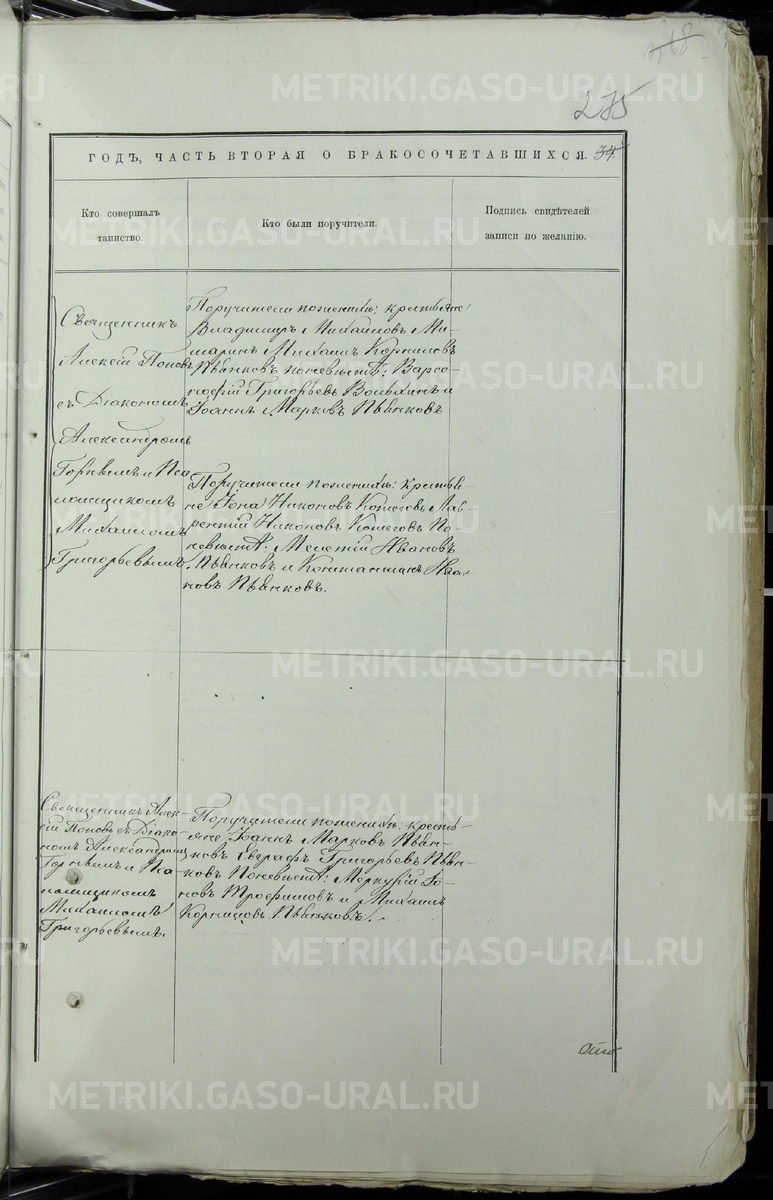 METRIKI.GASO-URAL.RU
275
ГОДЪ, ЧАСТЬ ВТОРАЯ О БРАКОСОЧЕТАВШИХСЯ. 34
Кто совершалъ
таинство.
Кто были поручители.
Подпись свидѣтелей
записи по желанію.
Священникъ
Алексій Поповъ
съ Діакономъ
Александромъ
и Пса
ломщикомъ
Михаиломъ
Григорьевымъ
Поручители по женихѣ: крестьяне
Владимиръ Михайловъ Ми-
шаринъ Михаилъ Корниловъ
Пьянковъ по невѣстѣ: Варсо-
нофій Григорьевъ и
Іоаннъ Марковъ Пьянковъ
Поручители по женихѣ: крестья-
не Іона Никоновъ Кошеговъ Лав-
рентій Никоновъ Кошеговъ По
невѣстѣ: Мелетій Ивановъ
Пьянковъ и Константинъ Ива-
новъ Пьянковъ.
Священникъ Алек-
сій Поповъ съ Діако-
номъ Александромъ
и Пса
ломщикомъ
Михаиломъ
Григорьевымъ.
Поручители по женихѣ: кресть-
яне Іоаннъ Марковъ Пьян-
ковъ Евграфъ Григорьевъ Пьян-
ковъ По невѣстѣ: Меркурій Іо-
новъ Трофимовъ и Михаилъ
Корниловъ Пьянковъ.